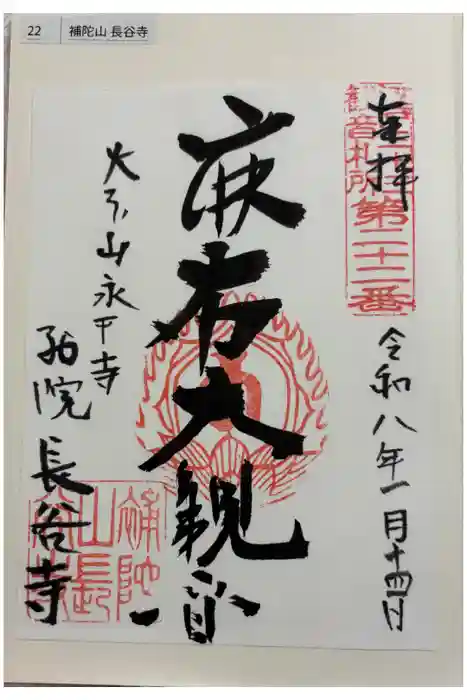 22 補陀山 長谷寺
奉拝
観音札所第二十二番
令和八年一月十四日
麻布大観音
大本山永平寺
別院 長谷寺
補陀
山長
谷寺